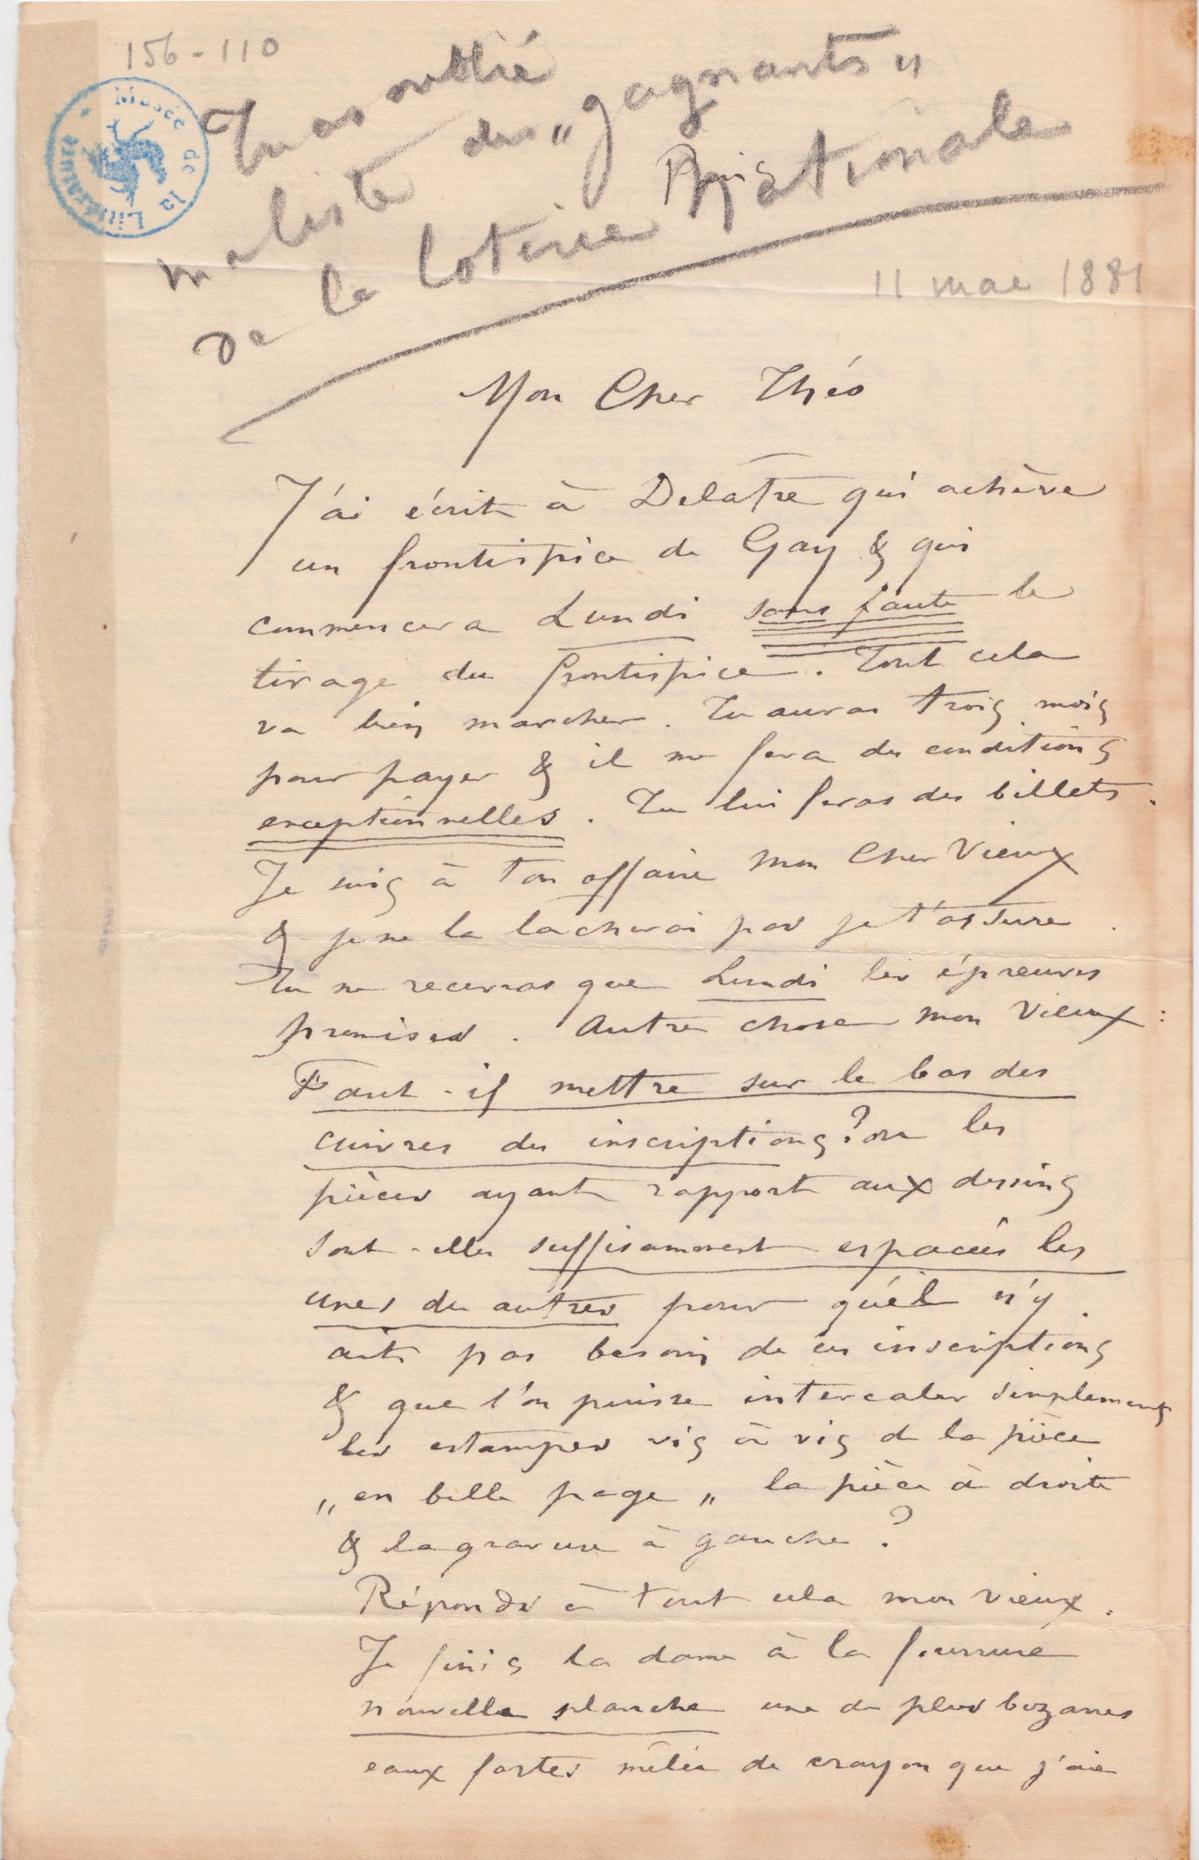 156-110
Musée de la Littérature
Tu as oublié
ma liste des „gagnants"
de la loterie Nationale
Paris
11 mai 1881
Mon Cher Théo
J'ai écrit à Delâtre qui achève
un frontispice de Gay & qui
commencera Lundi sans faute le
tirage du frontispice. Tout cela
va bien marcher. Tu auras trois mois
pour payer & il me fera des conditions
exceptionnelles. Tu lui feras des billets.
Je suis à ton affaire mon Cher Vieux
& je ne la lâcherai pas je t'assure.
Tu ne recevras que Lundi les épreuves
promises. Autre chose mon Vieux :
Faut-il mettre sur le bas des
cuivres des inscriptions? ou les
pièces ayant rapport aux dessins
sont-elles suffisamment espacées les
unes des autres pour qu'il n'y
ait pas besoin de ces inscriptions
& que l'on puisse intercaler simplement
les estampes vis à vis de la pièce
„en belle page„ la pièce à droite
& la gravure à gauche ?
Réponds à tout cela mon vieux.
Je finis la dame à la fourrure
nouvelle planche une des plus bizarres
eaux fortes mêlée de crayon que j'aie